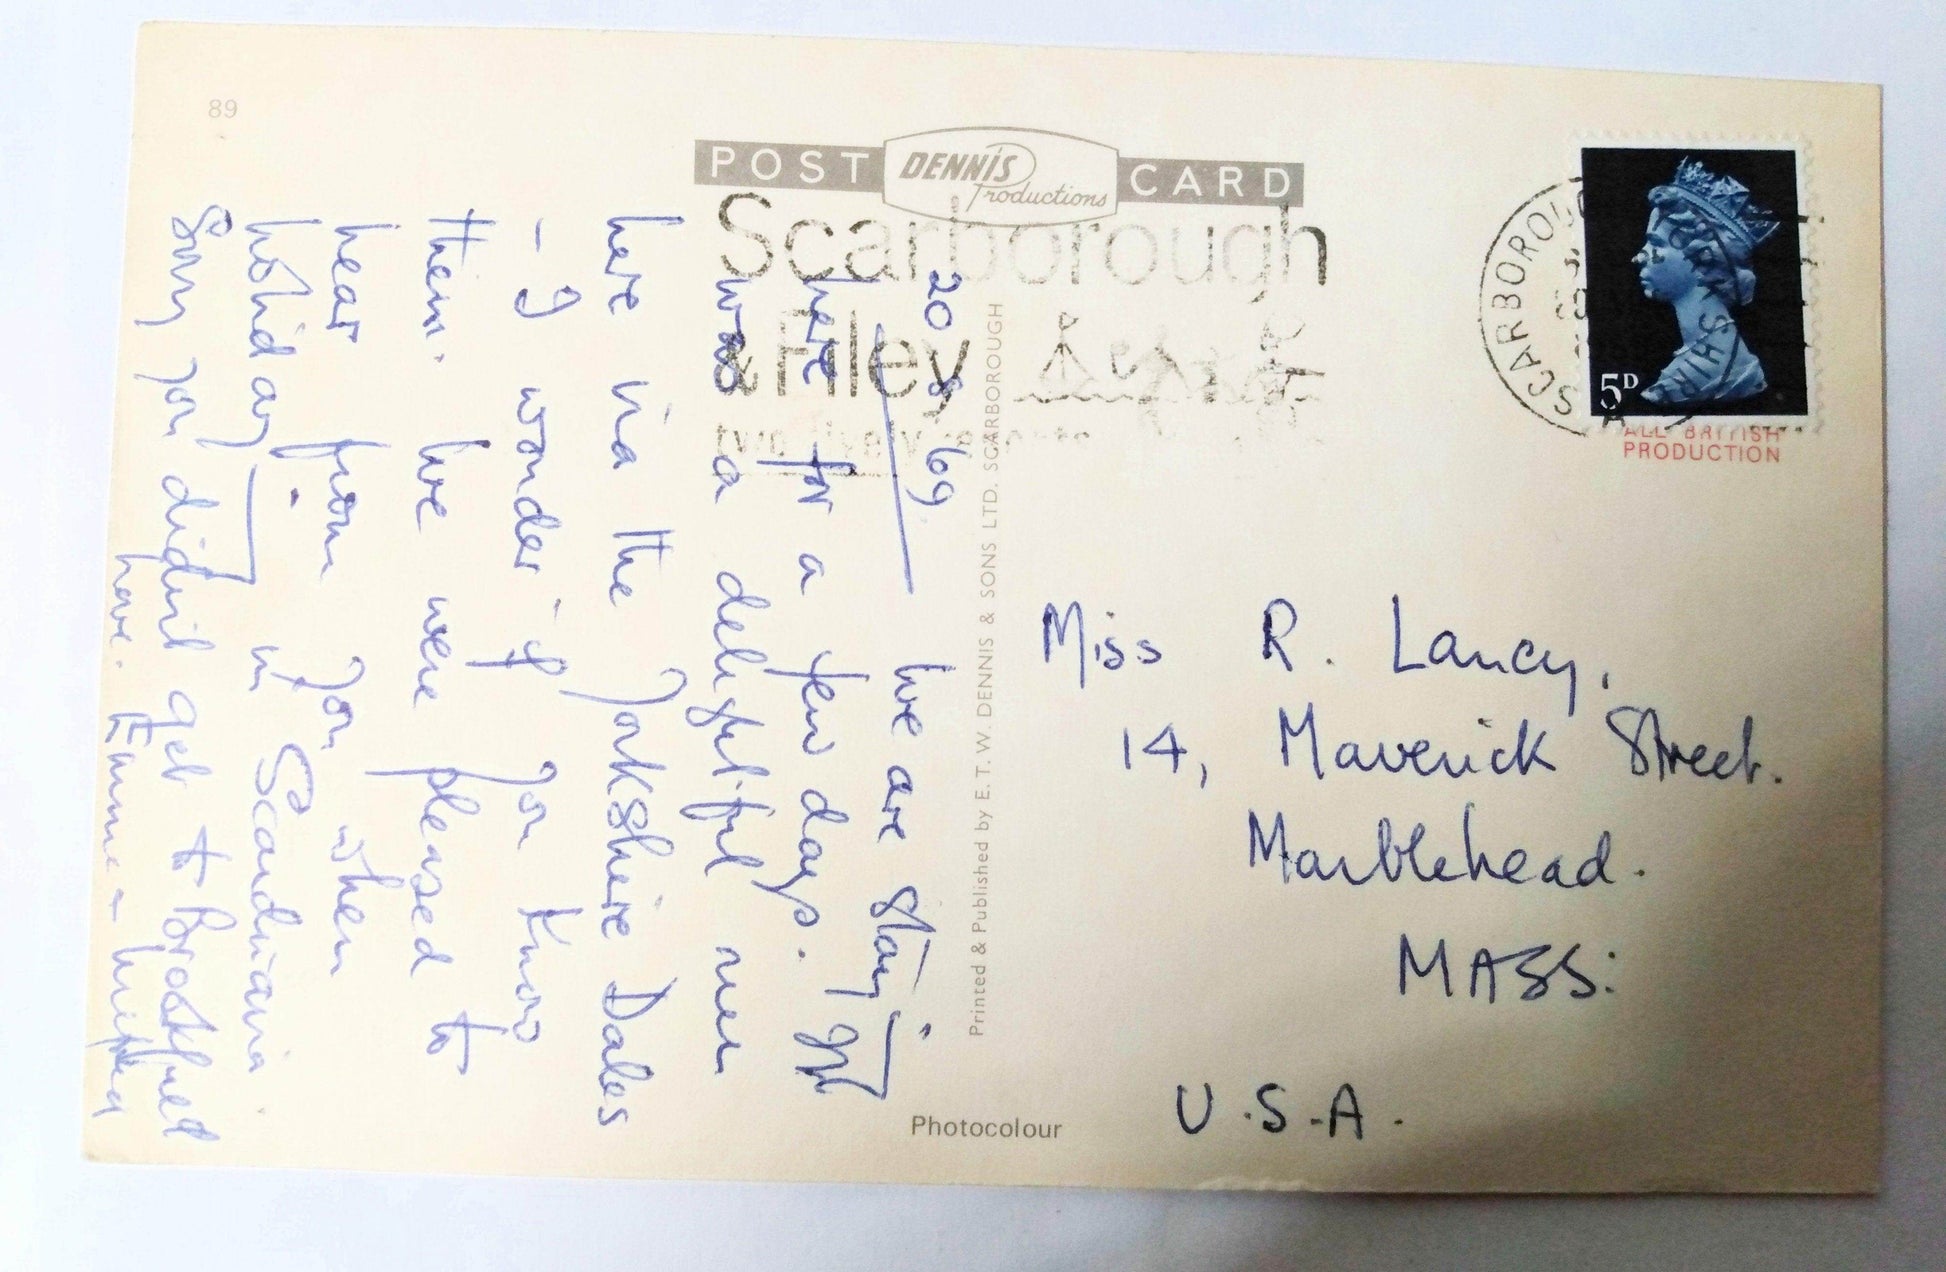 89
POST CARD
DENNIS
Productions
Scarborough
& Filey
SCARBOROUGH
YORKSHIRE
5D
ALL BRITISH
PRODUCTION
20 8 69.
We are staying
here for a few days. It
was a delightful run
here via the Yorkshire Dales
- I wonder if you know
them. We were pleased to
hear from you when
holidaying in Scandinavia
Sorry you didn't get to
here.
Printed & Published by E. T. W. DENNIS & SONS LTD. SCARBOROUGH
Photocolour
Miss R. Lancy,
14, Maverick Street.
Marblehead.
MASS:
U.S.A.